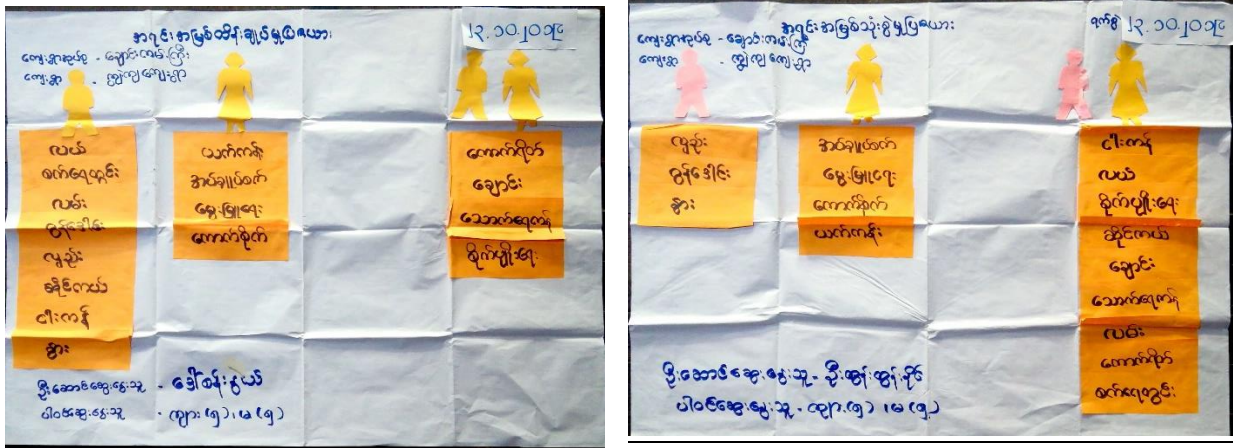 အရင်းအမြစ်ထိန်းချုပ်မှုပြဇယား
၂၃.၁၀.၂၀၁၄
ကျေးရွာအုပ်စု - ချောင်းကမ်းကြီး
ကျေးရွာ - ကျွဲကျကျေးရွာ
လယ်
စက်ရေတွင်း
လမ်း
ထွန်ဒေါင်း
လှည်း
ဆိုင်ကယ်
ငါးကန်
နွား
ယက်ကန်း
အပ်ချုပ်စက်
မွေးမြူရေး
ကောက်စိုက်
ကောက်ရိတ်
ချောင်း
သောက်ရေကန်
စိုက်ပျိုးရေး
ဦးဆောင်ဆွေးနွေးသူ - ဒေါ်စန်းနွယ်
ပါဝင်ဆွေးနွေးသူ - ကျား (၅) ၊ မ (၅)
အရင်းအမြစ်သုံးစွဲမှုပြဇယား
ရက်စွဲ ၂၃.၁၀.၂၀၁၄
ကျေးရွာအုပ်စု - ချောင်းကမ်းကြီး
ကျေးရွာ - ကျွဲကျကျေးရွာ
လှည်း
ထွန်ဒေါင်း
နွား
အပ်ချုပ်စက်
မွေးမြူရေး
ကောက်စိုက်
ယက်ကန်း
ငါးကန်
လယ်
စိုက်ပျိုးရေး
ဆိုင်ကယ်
ချောင်း
သောက်ရေကန်
လမ်း
ကောက်ရိတ်
စက်ရေတွင်း
ဦးဆောင်ဆွေးနွေးသူ - ဦးထွန်းထွန်းနိုင်
ပါဝင်ဆွေးနွေးသူ - ကျား (၅) ၊ မ (၅)